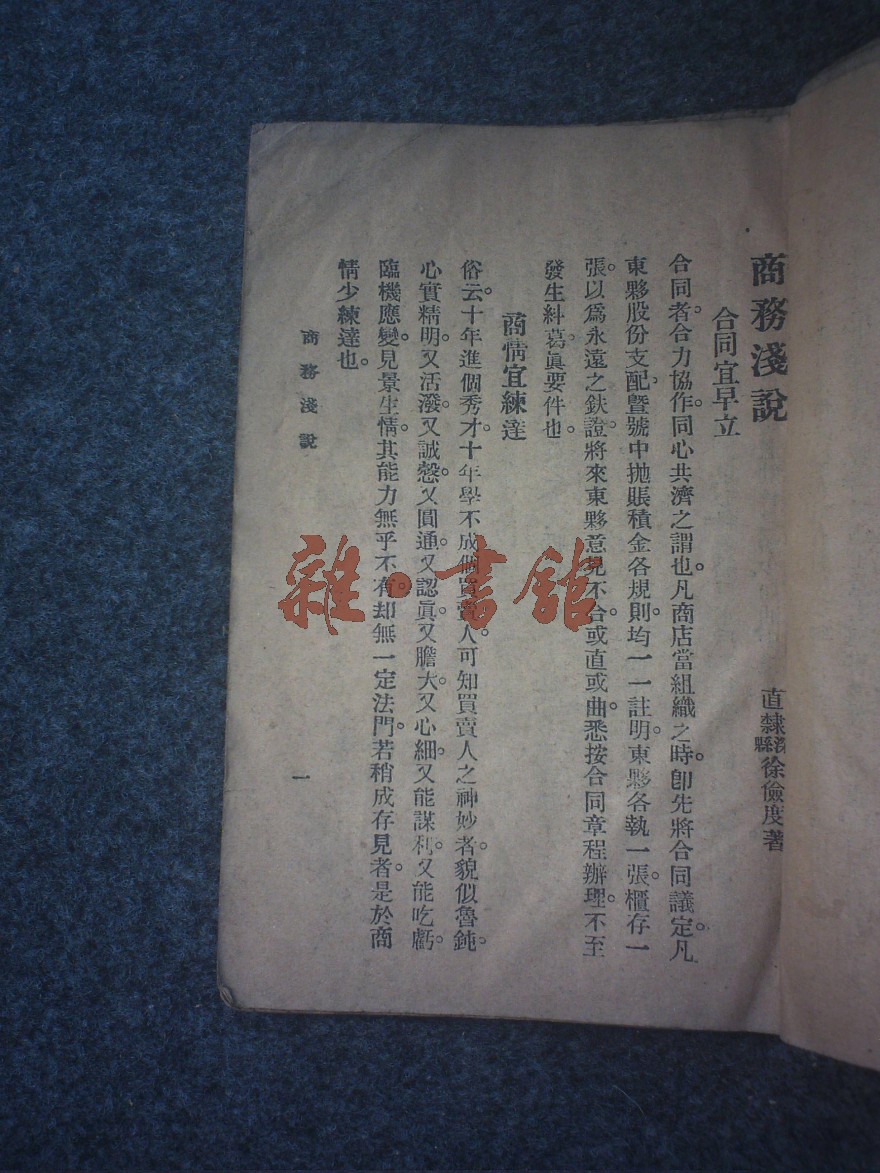 商務淺說
直隸深縣徐儉度著
合同宜早立
合同者。合力協作。同心共濟之謂也。凡商店當組織之時。卽先將合同議定。凡
東夥股份支配。暨號中抛賬積金各規則。均一一註明。東夥各執一張。櫃存一
張。以爲永遠之鈌證。將來東夥意見不合。或直或曲。悉按合同章程辦理。不至
發生糾葛。眞要件也。
商情宜練達
俗云。十年進個秀才。十年學不成個買賣人。可知買賣人之神妙者。貌似魯鈍。
心實精明。又活潑。又誠慤。又圓通。又認眞。又膽大。又心細。又能謀利。又能吃虧。
臨機應變。見景生情。其能力無乎不有。却無一定法門。若稍成存見者。是於商
情少練達也。
商務淺說
一
雜·書館